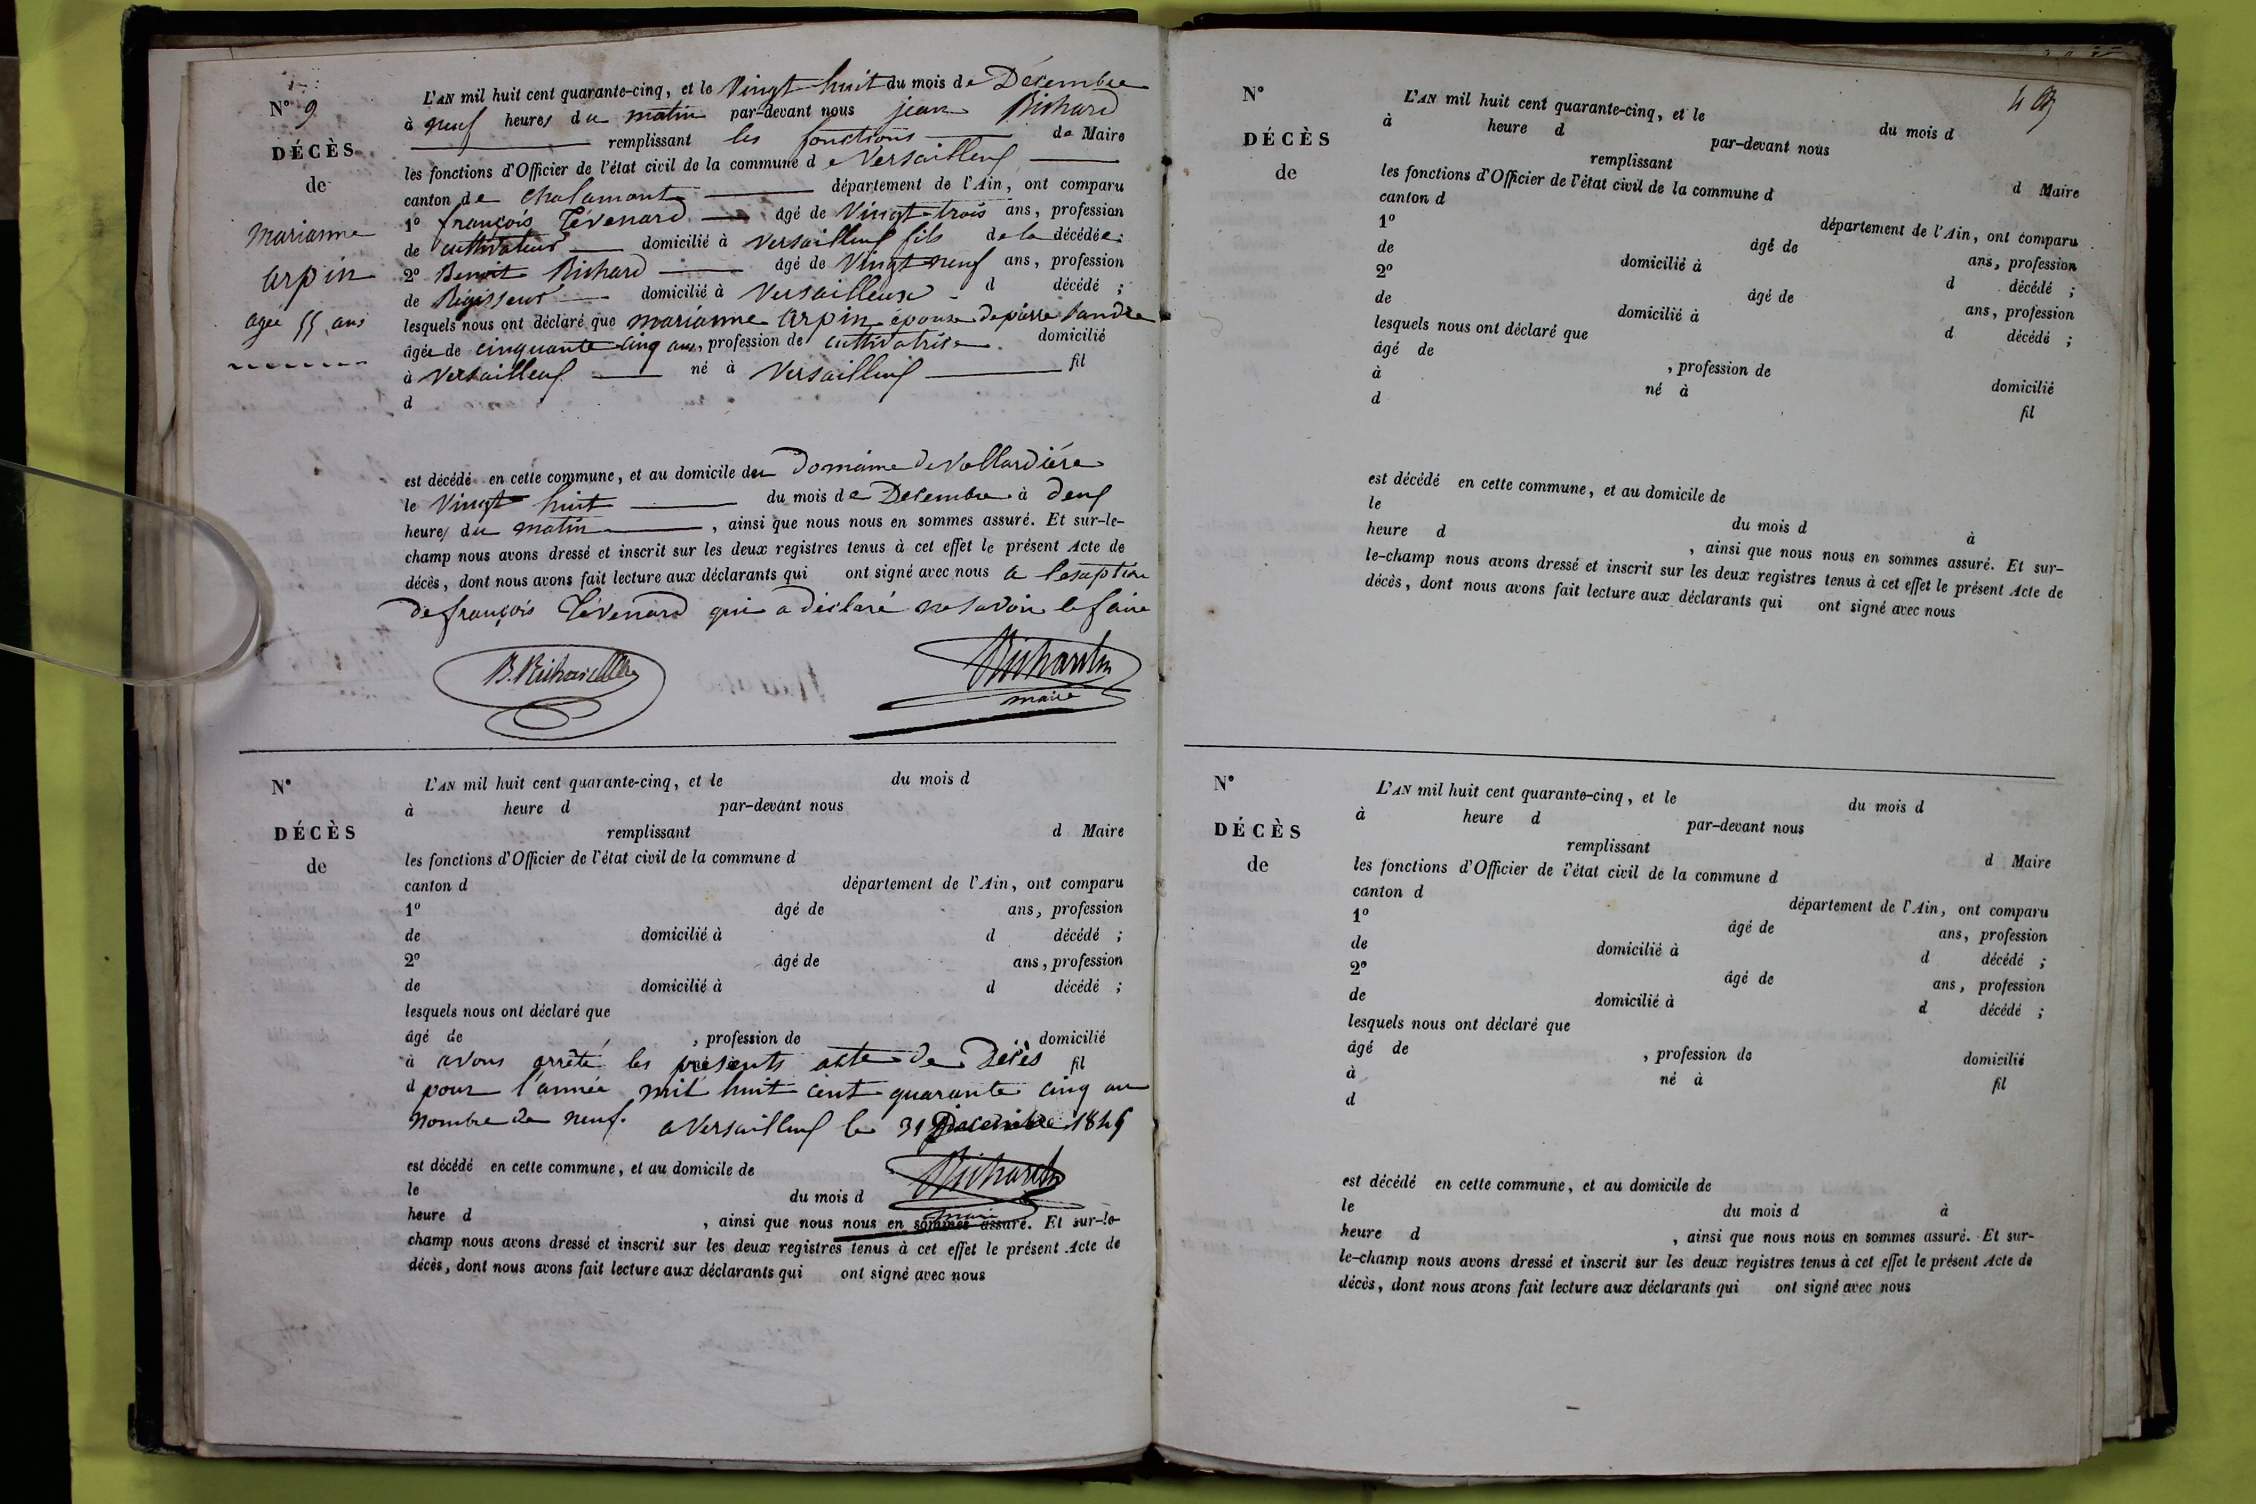 N° 9
DÉCÈS
de
marianne
arpin
agee 55 ans
L'AN mil huit cent quarante-cinq, et le Vingt huit du mois de Décembre
à neuf heures du matin par-devant nous jean Richard
remplissant les fonctions de Maire
les fonctions d'Officier de l'état civil de la commune de Versailleux
canton de chalamont département de l'Ain, ont comparu
1° françois Tévenard âgé de Vingt-trois ans, profession
de cultivateur domicilié à Versailleux fils de la décédée;
2° Benoit Richard âgé de Vingt neuf ans, profession
de Régisseur domicilié à Versailleux d décédé ;
lesquels nous ont déclaré que marianne arpin épouse de pierre
âgée de cinquante cinq ans, profession de cultivatrice domicilié
à Versailleux né à Versailleux fil
d
est décédé en cette commune, et au domicile du Domaine de
le Vingt huit du mois de Decembre à deux
heures du matin, ainsi que nous nous en sommes assuré. Et sur-le-
champ nous avons dressé et inscrit sur les deux registres tenus à cet effet le présent Acte de
décès, dont nous avons fait lecture aux déclarants qui ont signé avec nous a
de françois Tévenard qui a déclaré ne savoir le faire
B. Richard
Richard
maire
N°
DÉCÈS
de
L'AN mil huit cent quarante-cinq, et le du mois d
à heure d par-devant nous
remplissant d Maire
les fonctions d'Officier de l'état civil de la commune d
canton d département de l'Ain, ont comparu
1° âgé de ans, profession
de domicilié à d décédé ;
2° âgé de ans, profession
de domicilié à d décédé ;
lesquels nous ont déclaré que
âgé de , profession de domicilié
à avons arrêté les présents acte de Décès fil
d pour l'année mil huit cent quarante cinq au
nombre de neuf. a Versailleux le 31 Décembre 1845
est décédé en cette commune, et au domicile de
Richard
le du mois d
maire
heure d , ainsi que nous nous en sommes assuré. Et sur-le-
champ nous avons dressé et inscrit sur les deux registres tenus à cet effet le présent Acte de
décès, dont nous avons fait lecture aux déclarants qui ont signé avec nous
N°
DÉCÈS
de
L'AN mil huit cent quarante-cinq, et le du mois d
à heure d par-devant nous
remplissant d Maire
les fonctions d'Officier de l'état civil de la commune d
canton d département de l'Ain, ont comparu
1° âgé de ans, profession
de domicilié à d décédé ;
2° âgé de ans, profession
de domicilié à d décédé ;
lesquels nous ont déclaré que
âgé de , profession de domicilié
à né à fil
d
est décédé en cette commune, et au domicile de
le du mois d à
heure d , ainsi que nous nous en sommes assuré. Et sur-
le-champ nous avons dressé et inscrit sur les deux registres tenus à cet effet le présent Acte de
décès, dont nous avons fait lecture aux déclarants qui ont signé avec nous
N°
DÉCÈS
de
L'AN mil huit cent quarante-cinq, et le du mois d
à heure d par-devant nous
remplissant d Maire
les fonctions d'Officier de l'état civil de la commune d
canton d département de l'Ain, ont comparu
1° âgé de ans, profession
de domicilié à d décédé ;
2° âgé de ans, profession
de domicilié à d décédé ;
lesquels nous ont déclaré que
âgé de , profession de domicilié
à né à fil
d
est décédé en cette commune, et au domicile de
le du mois d à
heure d , ainsi que nous nous en sommes assuré. Et sur-
le-champ nous avons dressé et inscrit sur les deux registres tenus à cet effet le présent Acte de
décès, dont nous avons fait lecture aux déclarants qui ont signé avec nous